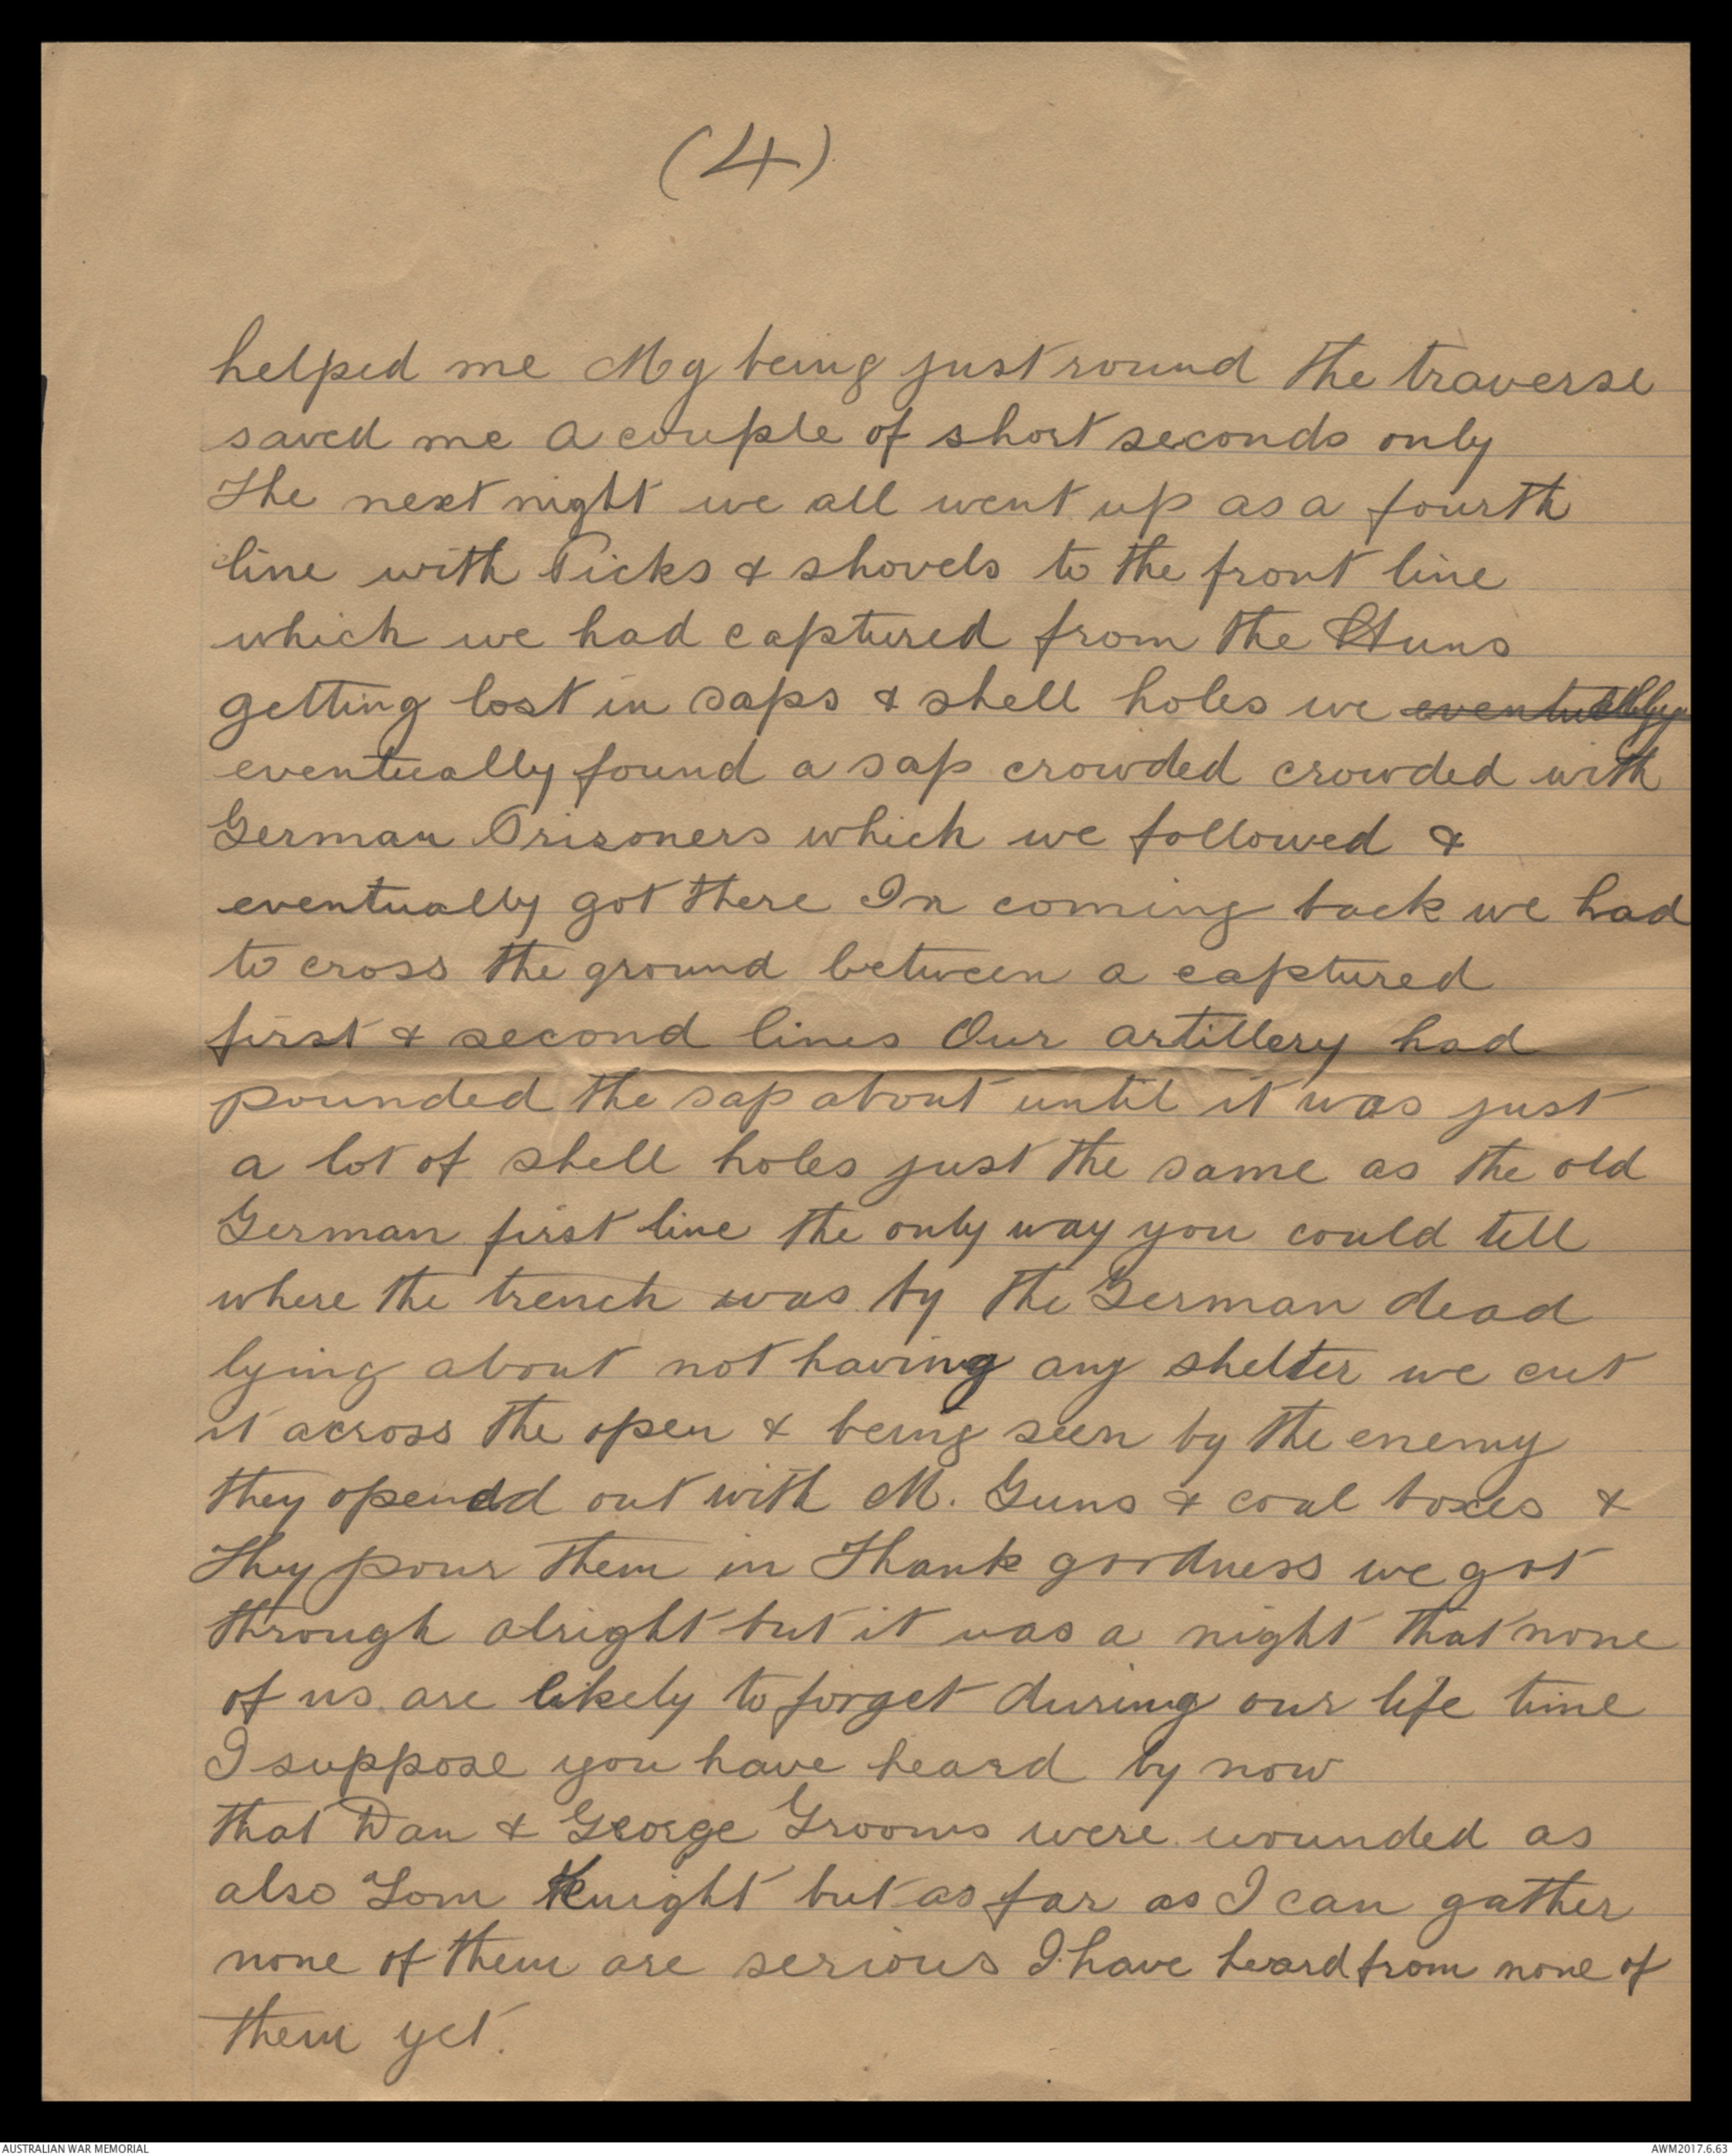 (4)
helped me My being just round the traverse
saved me a couple of short seconds only
The next night we all went up as a fourth
line with Picks & shovels to the front line
which we had captured from the Huns
getting lost in saps & shell holes we eventually
eventually found a sap crowded crowded with
German Prisoners which we followed &
eventually got there In coming back we had
to cross the ground between a captured
first & second lines Our artillery had
pounded the sap about until it was just
a lot of shell holes just the same as the old
German first line the only way you could tell
where the trench was by the German dead
lying about not having any shelter we cut
it across the open & being seen by the enemy
they opened out with M. Guns & coal boxes &
They pour them in Thank goodness we got
through alright but it was a night that none
of us are likely to forget during our life time
I suppose you have heard by now
that Dan & George Grooms were wounded as
also Tom Knight but as far as I can gather
none of them are serious I have heard from none of
them yet.
AUSTRALIAN WAR MEMORIAL
AWM2017.6.63